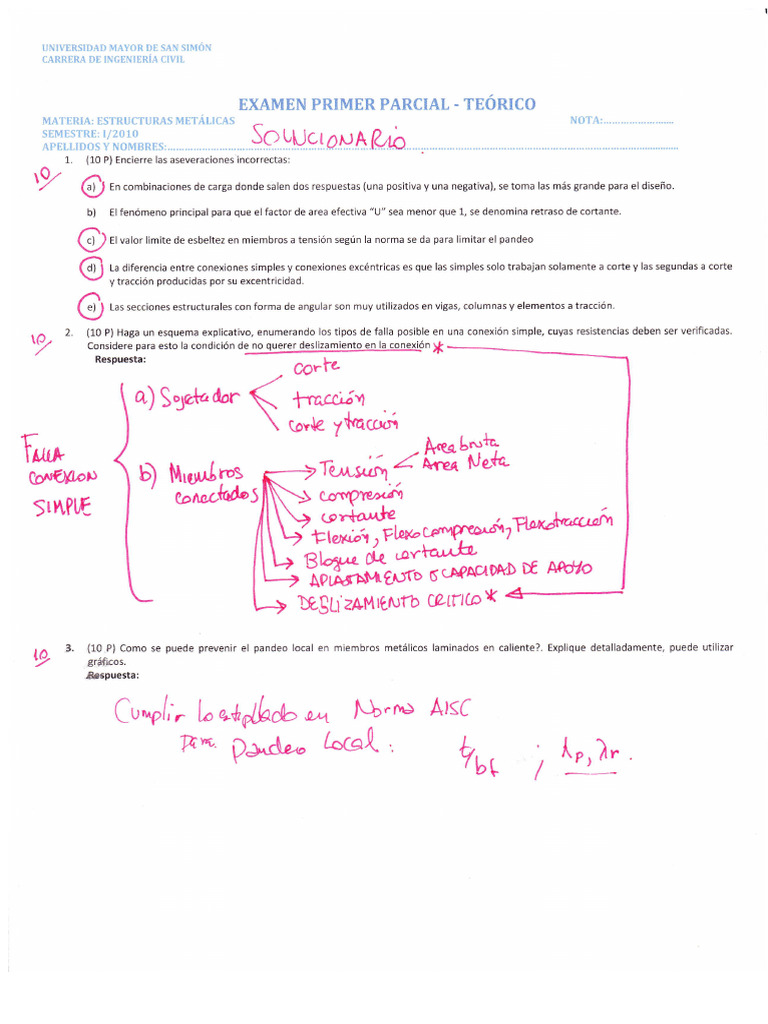 UNIVERSIDAD MAYOR DE SAN SIMÓN
CARRERA DE INGENIERÍA CIVIL
EXAMEN PRIMER PARCIAL - TEÓRICO
MATERIA: ESTRUCTURAS METÁLICAS NOTA:........................
SEMESTRE: I/2010
SOLUCIONARIO
APELLIDOS Y NOMBRES:........................
10
1. (10 P) Encierre las aseveraciones incorrectas:
a) En combinaciones de carga donde salen dos respuestas (una positiva y una negativa), se toma las más grande para el diseño.
b) El fenómeno principal para que el factor de area efectiva "U" sea menor que 1, se denomina retraso de cortante.
c) El valor limite de esbeltez en miembros a tensión según la norma se da para limitar el pandeo
d) La diferencia entre conexiones simples y conexiones excéntricas es que las simples solo trabajan solamente a corte y las segundas a corte
y tracción producidas por su excentricidad.
e) Las secciones estructurales con forma de angular son muy utilizados en vigas, columnas y elementos a tracción.
10
2. (10 P) Haga un esquema explicativo, enumerando los tipos de falla posible en una conexión simple, cuyas resistencias deben ser verificadas.
Considere para esto la condición de no querer deslizamiento en la conexión *
Respuesta:
FALLA
CONEXION
SIMPLE
a) Sojetador
corte
tracción
corte y tracción
b) Miembros
conectados
Tensión
Area bruta
Area Neta
compresión
cortante
Flexión, Flexo compresión, Flexotracción
Bloque de cortante
APLASTAMIENTO o CAPACIDAD DE APOYO
DESLIZAMIENTO CRITICO *
10
3. (10 P) Como se puede prevenir el pandeo local en miembros metálicos laminados en caliente?. Explique detalladamente, puede utilizar
gráficos.
Respuesta:
Cumplir lo estipulado en Norma AISC
Para pandeo Local: t/bf ; λp, λr.